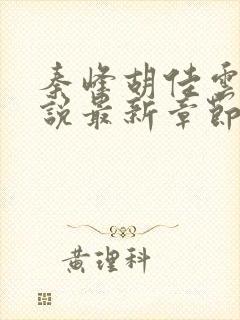 秦峰胡佳雲
說最新章節
黃理科